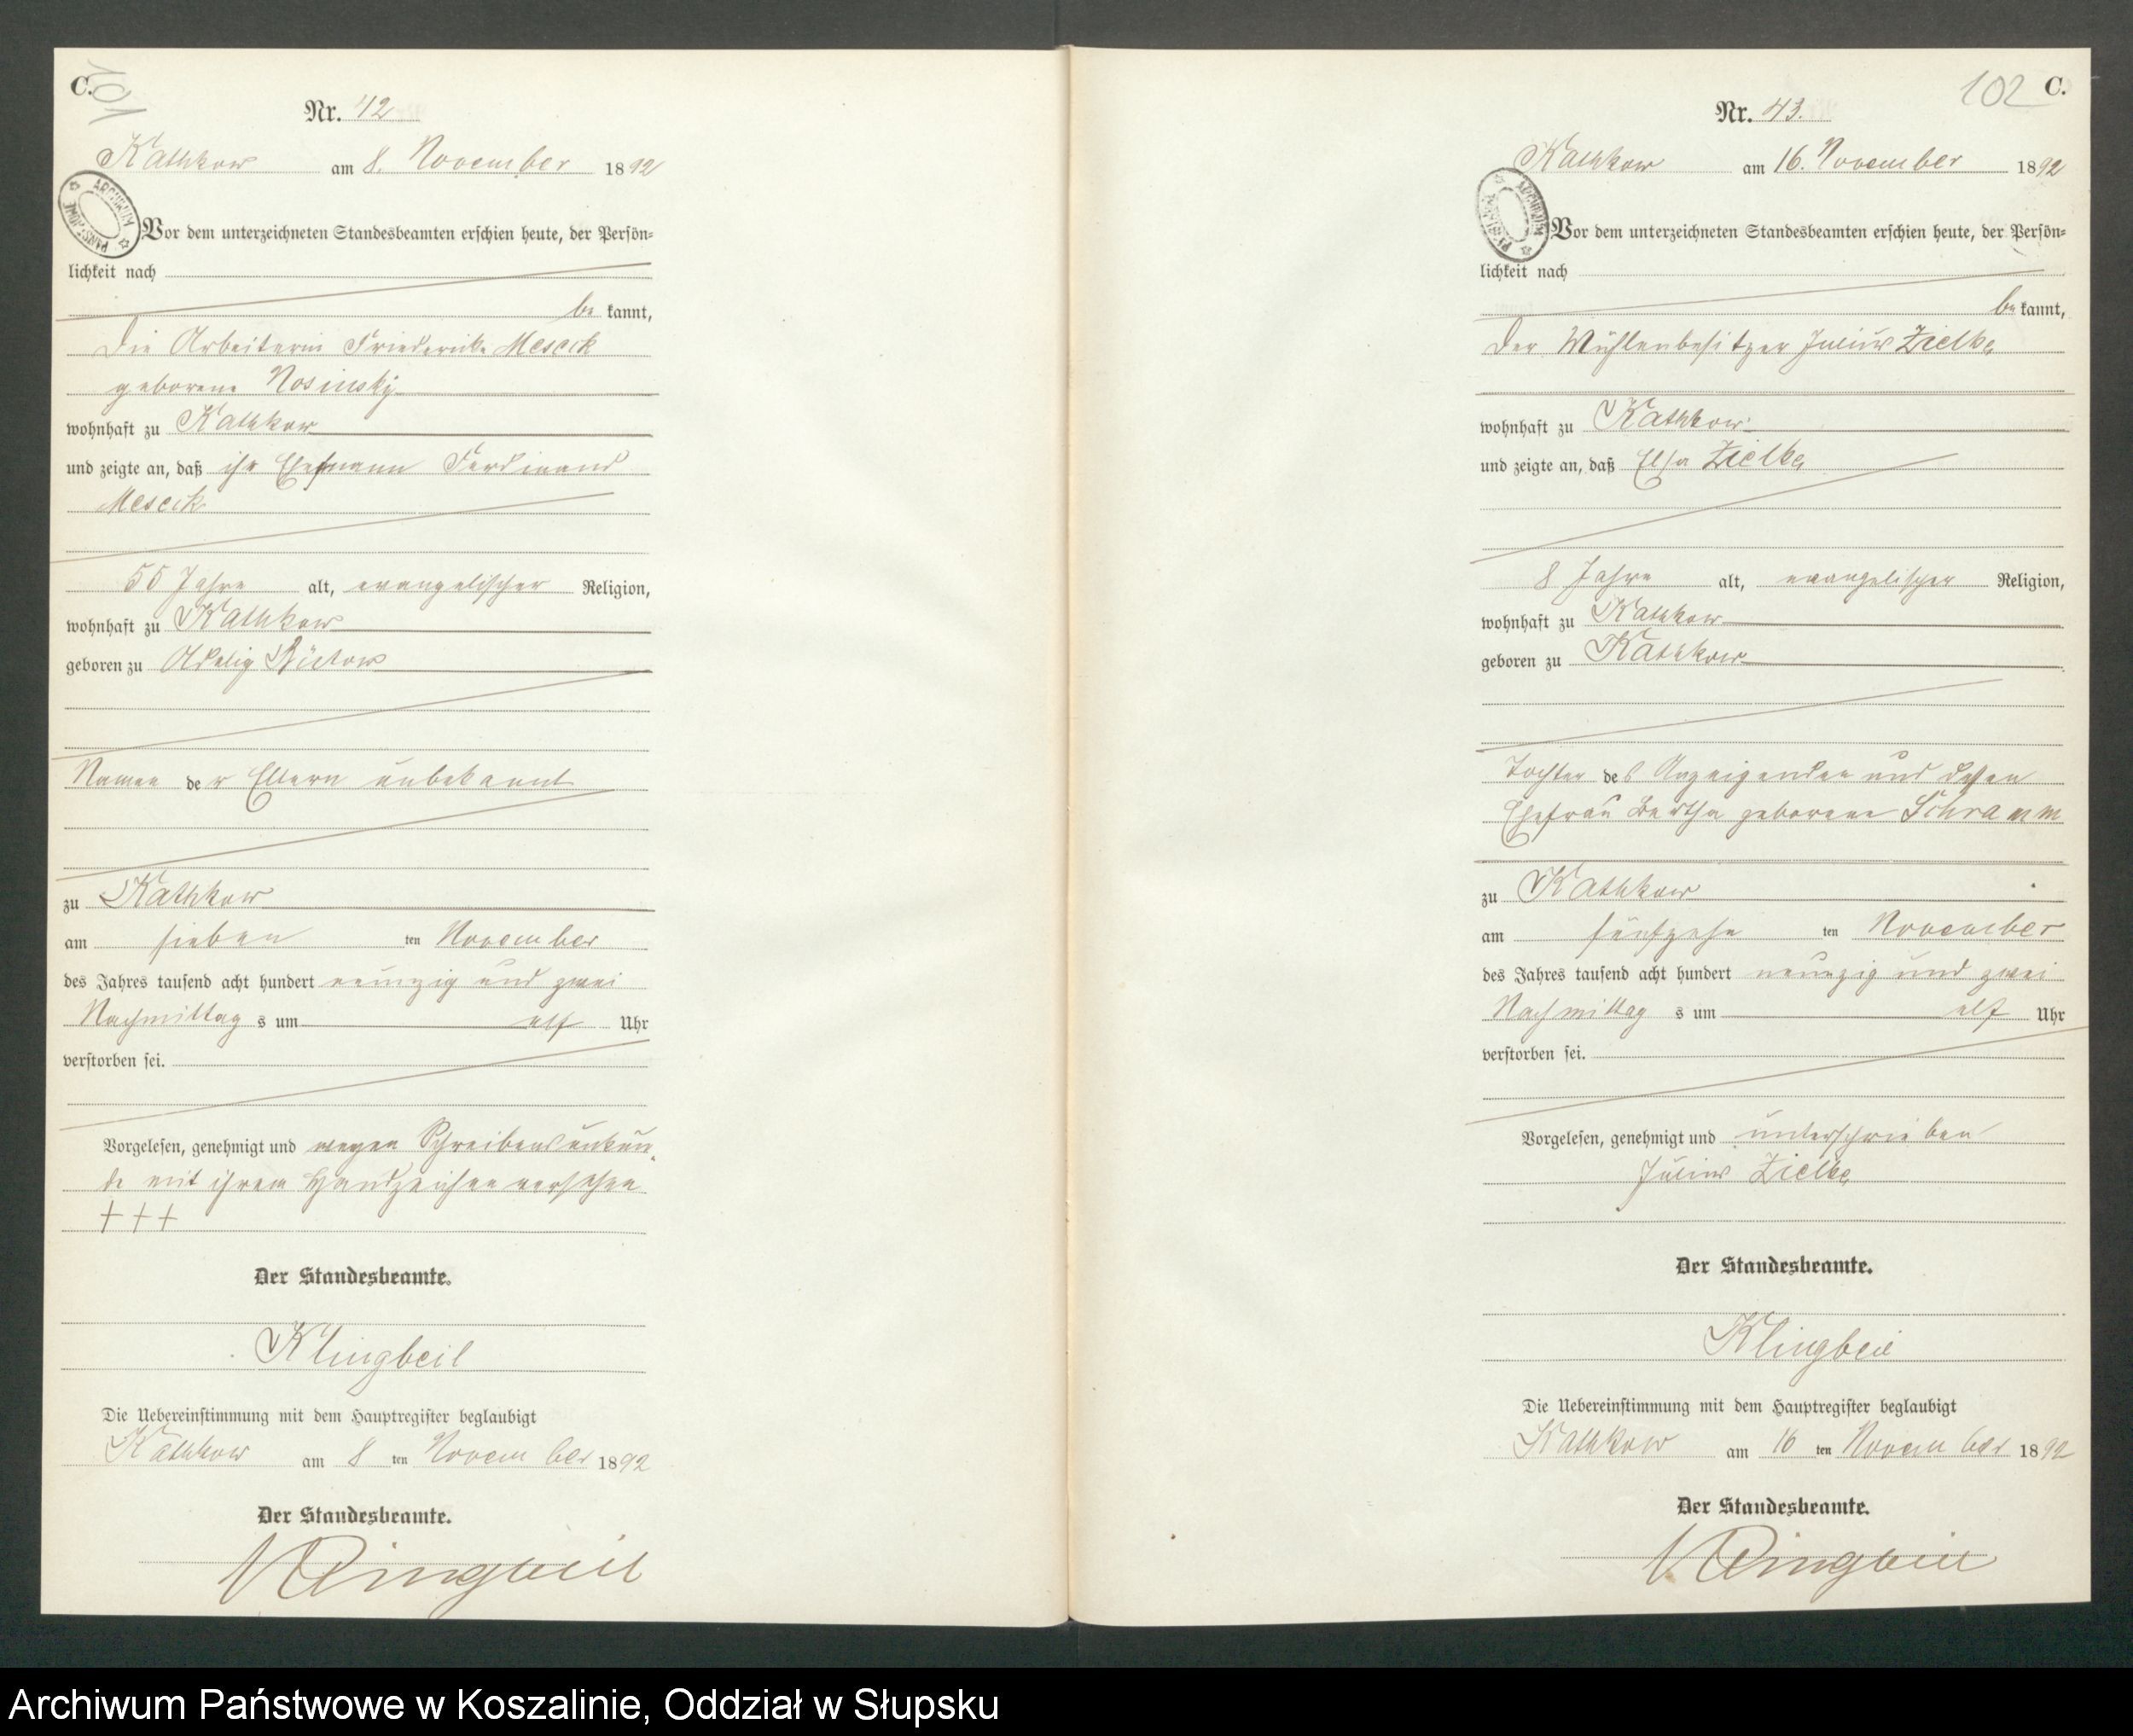 C.
101
Nr. 42
Kathkow am 8. November 1892
ARCHIWUM PAŃSTWOWE
Vor dem unterzeichneten Standesbeamten erschien heute, der Persön=
lichkeit nach
be kannt,
die Arbeiterin Friederike Mescik
geborene Nosinsky
wohnhaft zu Kathkow
und zeigte an, daß ihr Ehemann Ferdinand
Mescik
55 Jahre alt, evangelischer Religion,
wohnhaft zu Kathkow
geboren zu Adelig Bütow
Namen der Eltern unbekannt
zu Kathkow
am sieben ten November
des Jahres tausend acht hundert neunzig und zwei
Nachmittag s um elf Uhr
verstorben sei.
Vorgelesen, genehmigt und wegen Schreibensunkun=
de mit ihrem Handzeichen versehen
+++
Der Standesbeamte.
Klingbeil
Die Uebereinstimmung mit dem Hauptregister beglaubigt
Kathkow am 8 ten November 1892
Der Standesbeamte.
Klingbeil
102 C.
Nr. 43.
Kathkow am 16. November 1892
ARCHIWUM PAŃSTWOWE
Vor dem unterzeichneten Standesbeamten erschien heute, der Persön=
lichkeit nach
be kannt,
der Mühlenbesitzer Julius Zielke
wohnhaft zu Kathkow
und zeigte an, daß Elsa Zielke
8 Jahre alt, evangelischer Religion,
wohnhaft zu Kathkow
geboren zu Kathkow
Tochter des Anzeigenden und dessen
Ehefrau Bertha geborene Schramm
zu Kathkow
am fünfzehn ten November
des Jahres tausend acht hundert neunzig und zwei
Nachmittag s um elf Uhr
verstorben sei.
Vorgelesen, genehmigt und unterschrieben
Julius Zielke
Der Standesbeamte.
Klingbeil
Die Uebereinstimmung mit dem Hauptregister beglaubigt
Kathkow am 16 ten November 1892
Der Standesbeamte.
Klingbeil
Archiwum Państwowe w Koszalinie, Oddział w Słupsku